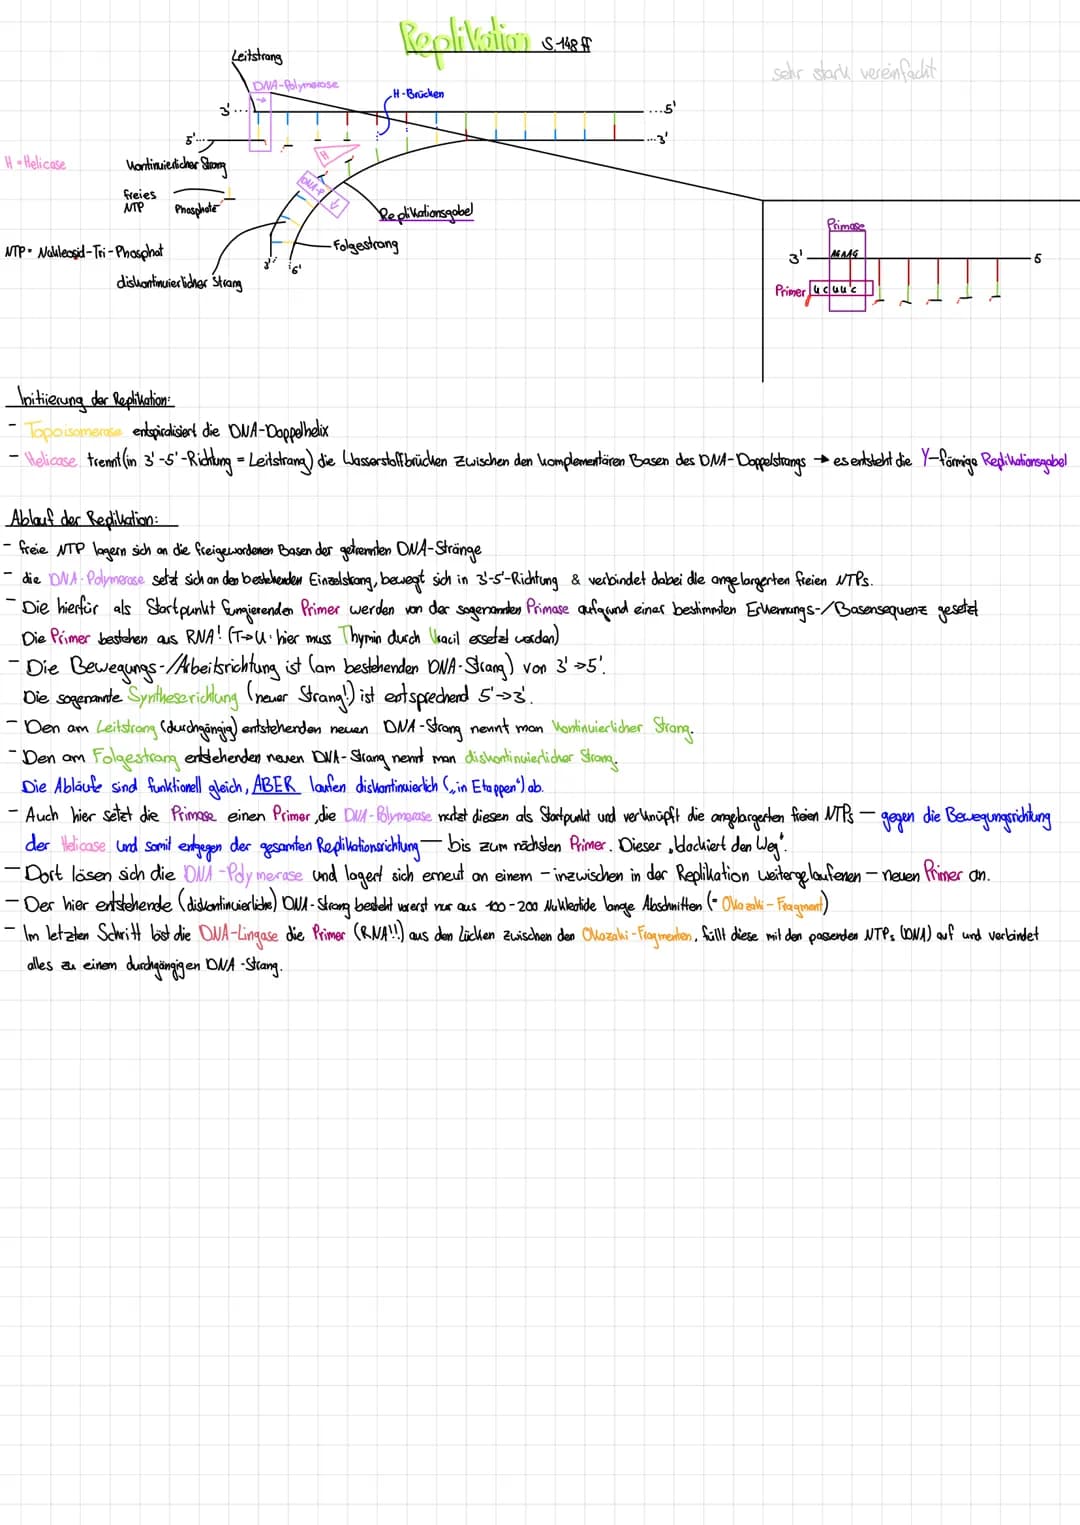 Replikation S.148 ff
sehr stark vereinfacht
Leitstrang
DNA-Polymerase
H-Brücken
3'...
...5'
5'...
...3'
H = Helicase
H
Kontinuierlicher Strang
freies
NTP
Phosphate
DNA-P
Replikationsgabel
Folgestrang
NTP = Nukleosid-Tri-Phosphat
3'
5'
diskontinuierlicher Strang
Primase
3'
AGAAG
5
Primer
UCUUC
Initiierung der Replikation:
- Topoisomerase entspiralisiert die DNA-Doppelhelix
- Helicase trennt (in 3'-5'-Richtung = Leitstrang) die Wasserstoffbrücken zwischen den komplementären Basen des DNA-Doppelstrangs → es entsteht die Y-förmige Replikationsgabel
Ablauf der Replikation:
- freie NTP lagern sich an die freigewordenen Basen der getrennten DNA-Stränge
- die DNA-Polymerase setzt sich an den bestehenden Einzelstrang, bewegt sich in 3'-5'-Richtung & verbindet dabei die angelargerten freien NTPs.
- Die hierfür als Startpunkt fungierenden Primer werden von der sogenannten Primase aufgrund einer bestimmten Erkennungs-/Basensequenz gesetzt
Die Primer bestehen aus RNA! (T→U: hier muss Thymin durch Uracil ersetzt werden)
- Die Bewegungs-/Arbeitsrichtung ist (am bestehenden DNA-Strang) von 3'→5'.
Die sogenannte Syntheserichtung (neuer Strang!) ist entsprechend 5'→3'.
- Den am Leitstrang (durchgängig) entstehenden neuen DNA-Strang nennt man Kontinuierlicher Strang.
- Den am Folgestrang entstehenden neuen DNA-Strang nennt man diskontinuierlicher Strang.
Die Abläufe sind funktionell gleich, ABER laufen diskontinuierlich („in Etappen") ab.
- Auch hier setzt die Primase einen Primer, die DNA-Polymerase nutzt diesen als Startpunkt und verknüpft die angelargerten freien NTPs — gegen die Bewegungsrichtung
der Helicase und somit entgegen der gesamten Replikationsrichtung — bis zum nächsten Primer. Dieser „blockiert den Weg".
- Dort lösen sich die DNA-Polymerase und lagert sich erneut an einem - inzwischen in der Replikation weitergelaufenen - neuen Primer an.
- Der hier entstehende (diskontinuierliche) DNA-Strang besteht vorerst nur aus 100-200 Nukleotide lange Abschnitten (= Okazaki-Fragment)
- Im letzten Schritt löst die DNA-Lingase die Primer (RNA!!) aus den Lücken zwischen den Okazaki-Fragmenten, füllt diese mit den passenden NTPs (DNA) auf und verbindet
alles zu einem durchgängigen DNA-Strang.